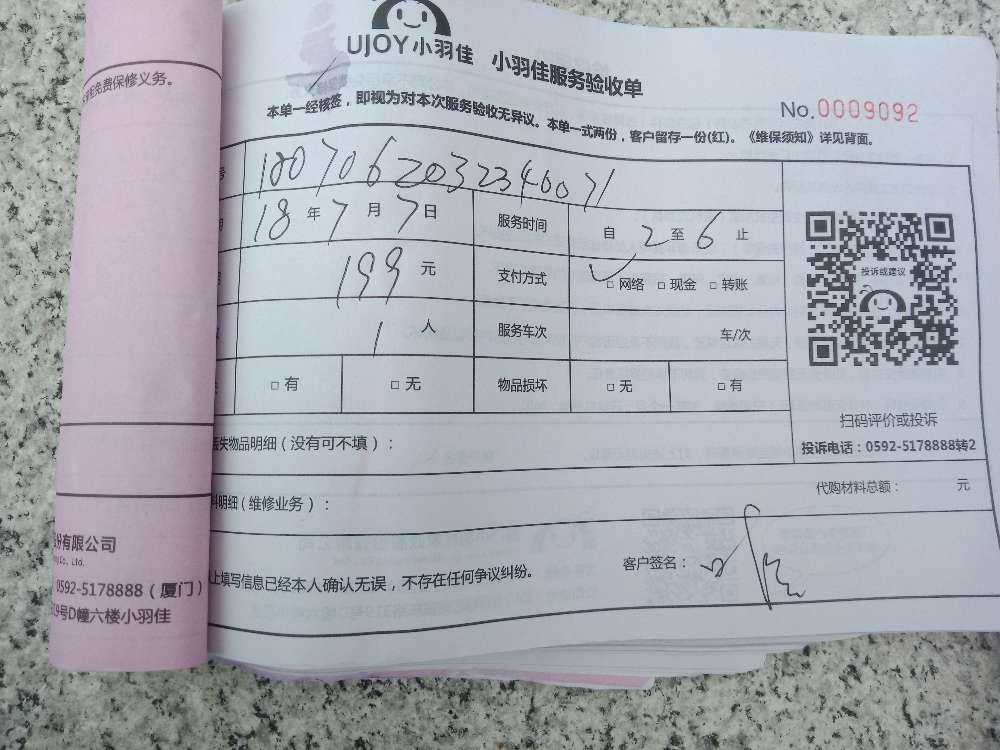 免费保修义务。
UJOY小羽佳 小羽佳服务验收单
本单一经核签，即视为对本次服务验收无异议。本单一式两份，客户留存一份(红)。《维保须知》详见背面。
No.0009092
18070620322340071
18年7月7日 服务时间 自2至6止
199元 支付方式 ✓□网络 □现金 □转账
1人 服务车次 车/次
□有 □无 物品损坏 □无 □有
投诉或建议
扫码评价或投诉
投诉电话：0592-5178888转2
丢失物品明细（没有可不填）：
料明细（维修业务）： 代购材料总额： 元
上填写信息已经本人确认无误，不存在任何争议纠纷。 客户签名：
份有限公司
Co., Ltd.
0592-5178888（厦门）
19号D幢六楼小羽佳